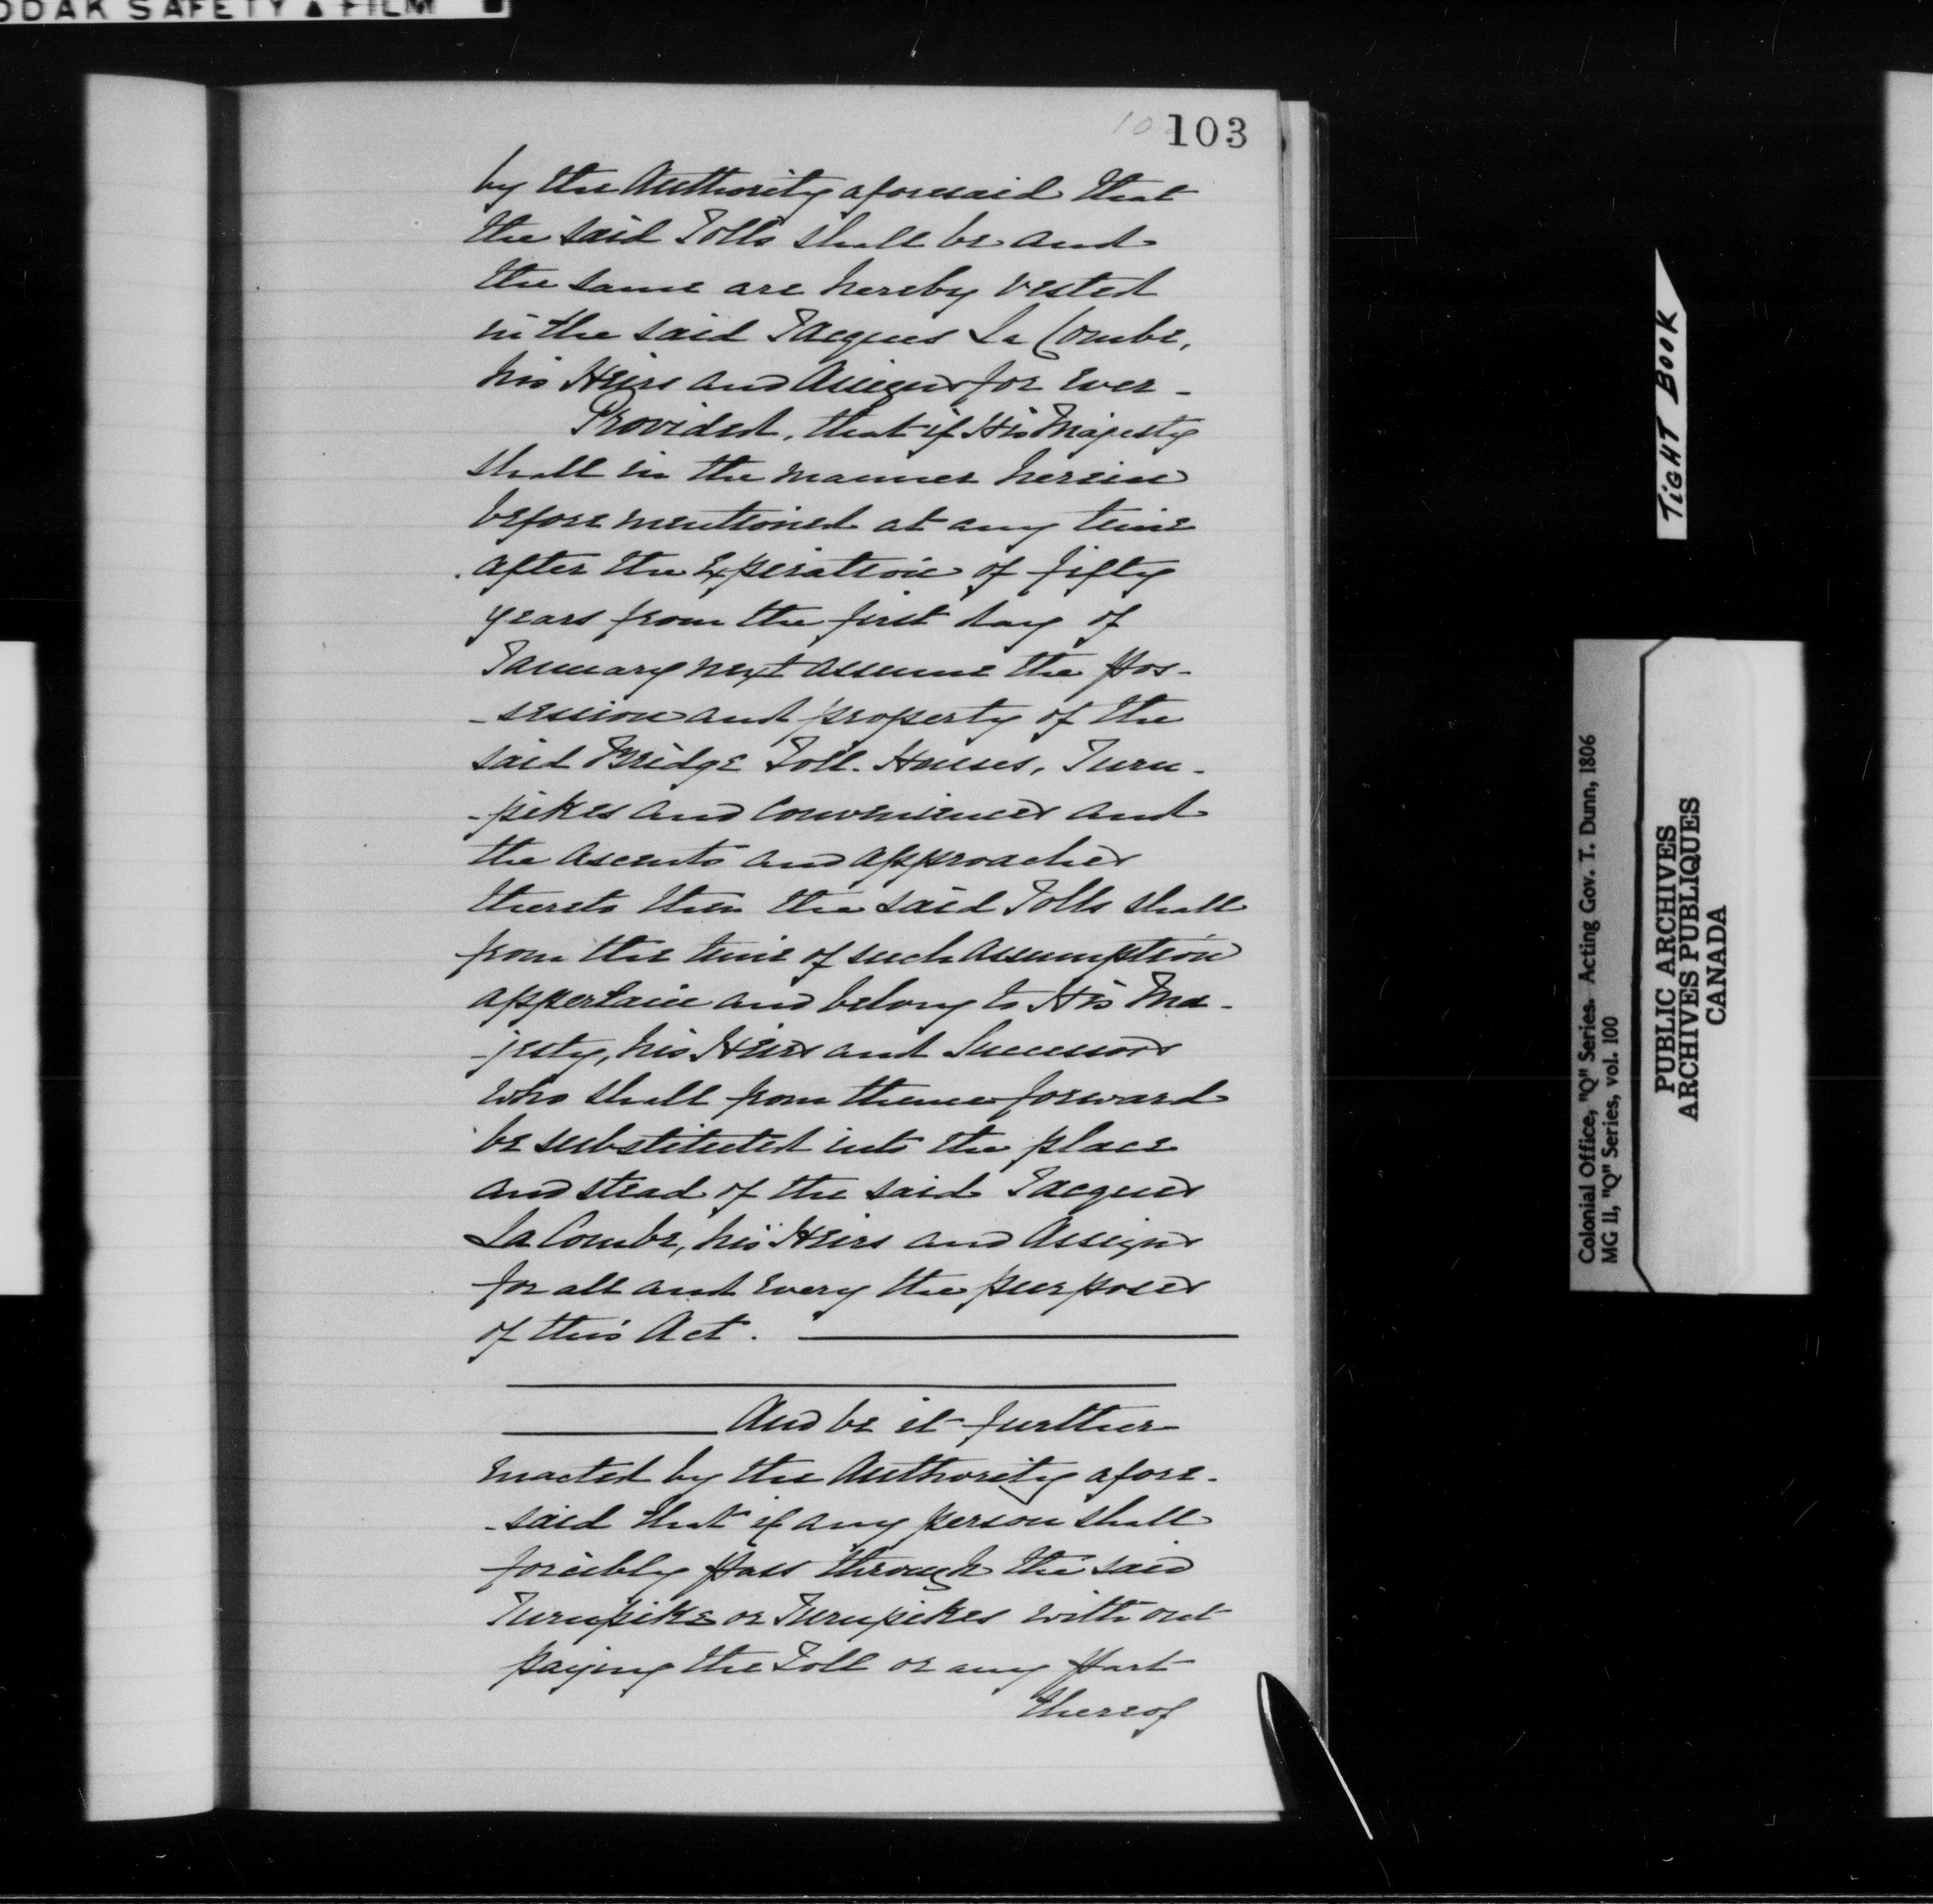 ODAK SAFETY ▲ FILM
103
by the Authority aforesaid that
the said Tolls shall be and
the same are hereby vested
in the said Jacques La Combe,
his Heirs and Assigns for Ever -
Provided, that if His Majesty
shall in the manner herein
before mentioned at any time
after the Expiration of fifty
years from the first day of
January next assume the Pos-
-session and property of the
said Bridge Toll. Houses, Turn-
-pikes and Conveniences and
the Ascents and approaches
thereto then the said Tolls shall
from the time of such Assumption
appertain and belong to His Ma-
-jesty, his Heirs and Successors
who shall from thence forward
be substituted into the place
and stead of the said Jacques
La Combe, his Heirs and Assigns
for all and Every the purposes
of this Act.
And be it further
Enacted by the Authority afore-
-said that if any person shall
forcibly Pass through the said
Turnpike or Turnpikes with out
paying the Toll or any Part
thereof
TIGHT BOOK
Colonial Office, "Q" Series. Acting Gov. T. Dunn, 1806
MG 11, "Q" Series, vol. 100
PUBLIC ARCHIVES
ARCHIVES PUBLIQUES
CANADA